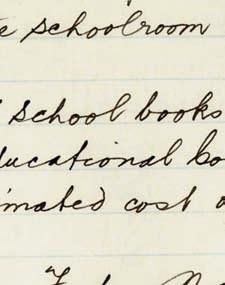 e schoolroom
school books
ducational bo
imated cost o